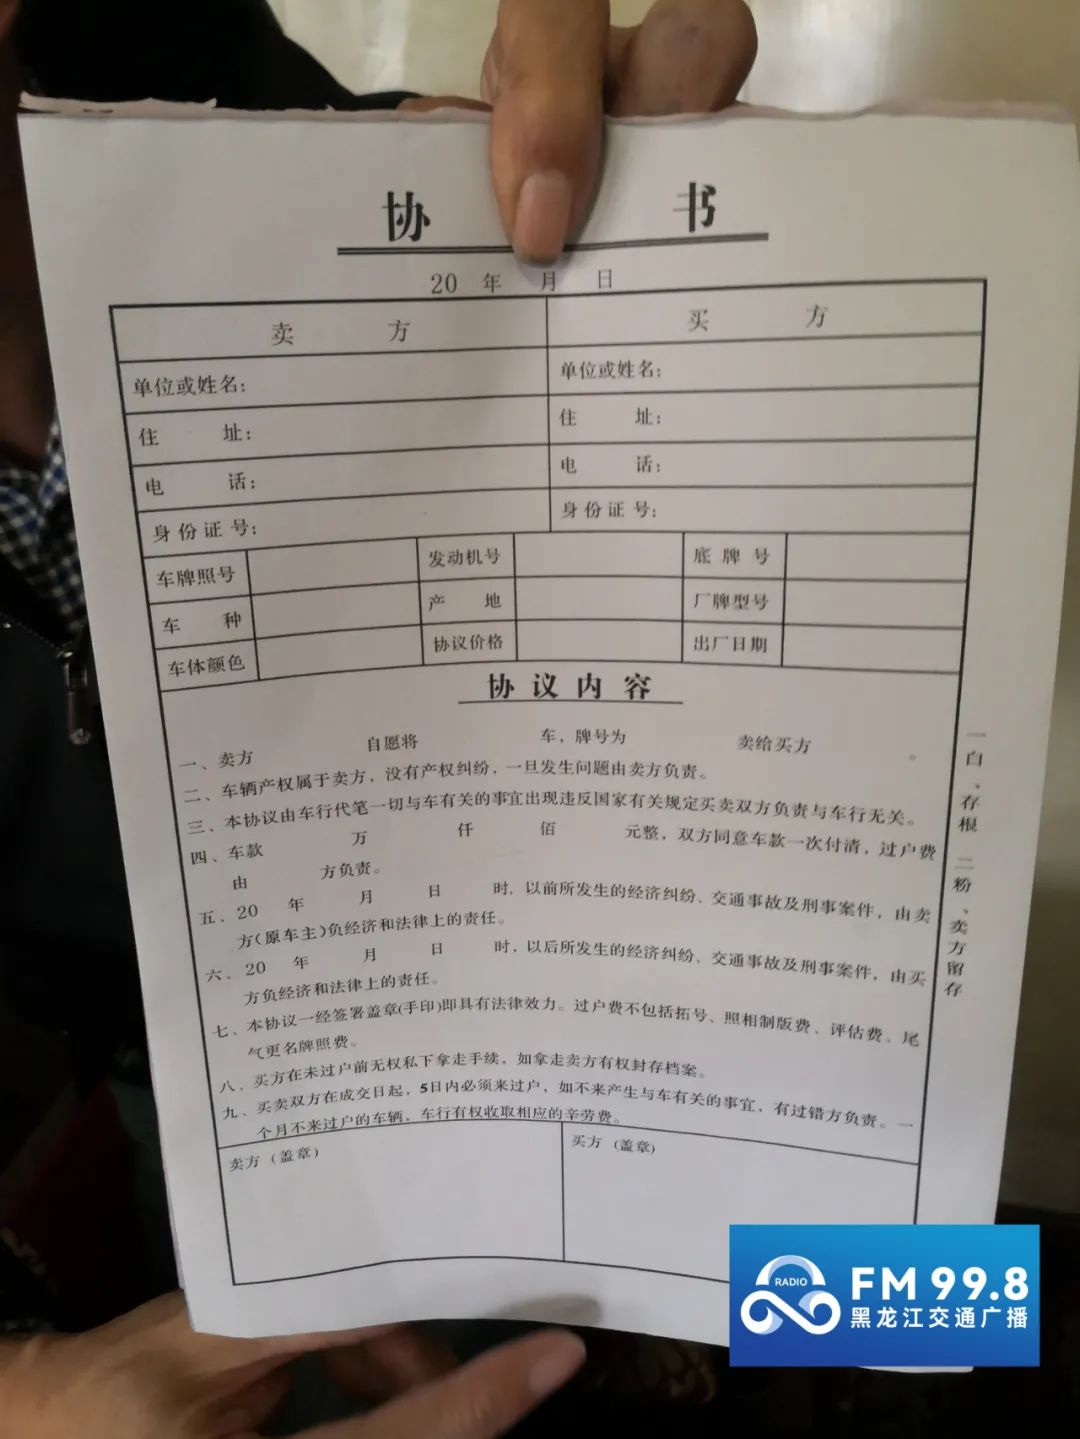 协 书
20 年 月 日
卖 方 买 方
单位或姓名: 单位或姓名:
住 址: 住 址:
电 话: 电 话:
身份证号: 身份证号:
车牌照号 发动机号 底牌号
车 种 产 地 厂牌型号
车体颜色 协议价格 出厂日期
协议内容
一、卖方 自愿将 车，牌号为 卖给买方 。
二、车辆产权属于卖方，没有产权纠纷，一旦发生问题由卖方负责。
三、本协议由车行代笔一切与车有关的事宜出现违反国家有关规定买卖双方负责与车行无关。
四、车款 万 仟 佰 元整，双方同意车款一次付清，过户费
由 方负责。
五、20 年 月 日 时，以前所发生的经济纠纷、交通事故及刑事案件，由卖
方(原车主)负经济和法律上的责任。
六、20 年 月 日 时，以后所发生的经济纠纷、交通事故及刑事案件，由买
方负经济和法律上的责任。
七、本协议一经签署盖章(手印)即具有法律效力。过户费不包括拓号、照相制版费、评估费、尾
气更名牌照费。
八、买方在未过户前无权私下拿走手续，如拿走卖方有权封存档案。
九、买卖双方在成交日起，5日内必须来过户，如不来产生与车有关的事宜，有过错方负责。一
个月不来过户的车辆，车行有权收取相应的辛劳费。
卖方（盖章） 买方（盖章）
一白、存根 二粉、卖方留存
RADIO
FM 99.8
黑龙江交通广播